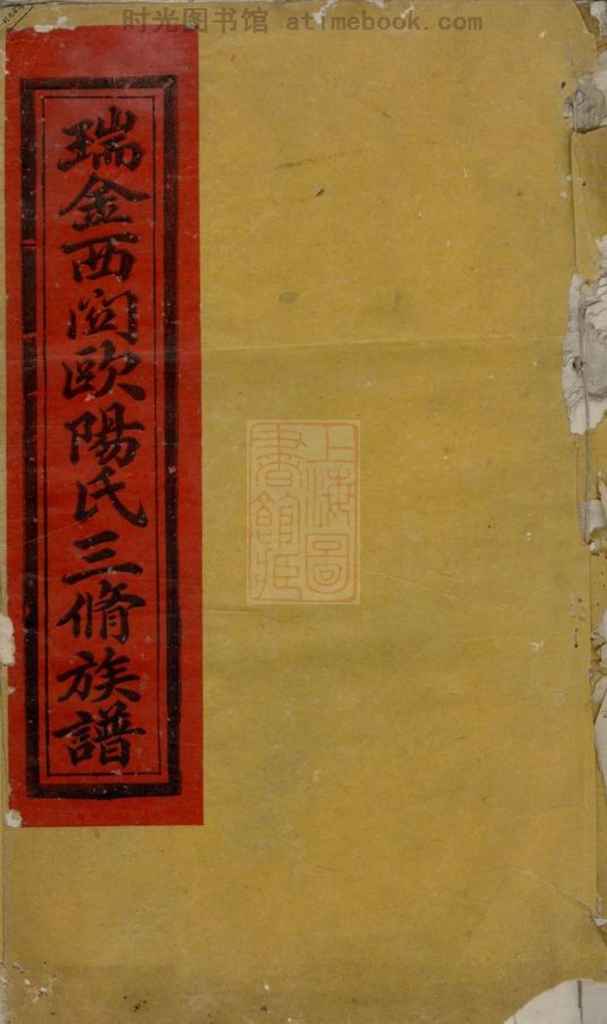 时光图书馆 atimebook.com
瑞金西関歐陽氏三脩族譜
上海圖
書館藏